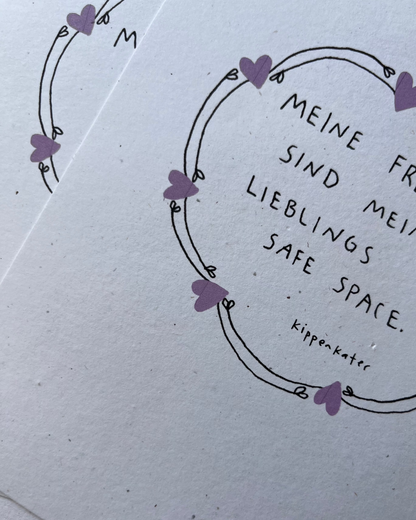 M
MEINE FR
SIND MEIN
LIEBLINGS
SAFE SPACE.
kippenkater